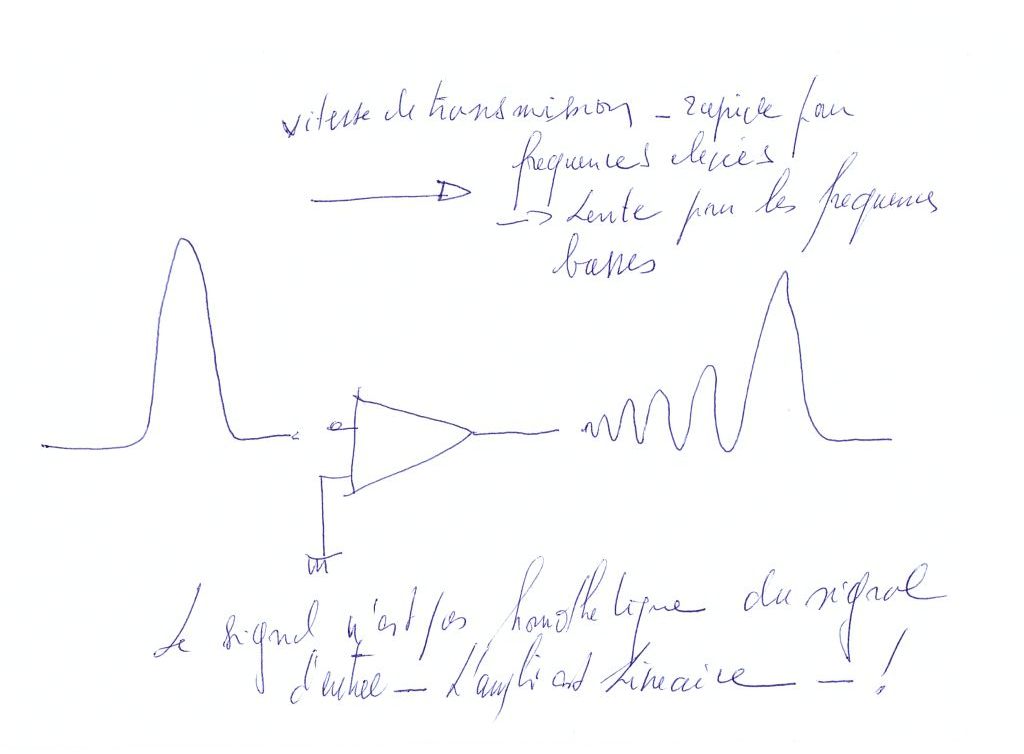 vitesse de transmission - rapide pour
frequences elevées
-> Lente pour les frequences
basses
Le signal n'est pas homothetique du signal
d'entrée - L'ampli est Lineaire - !